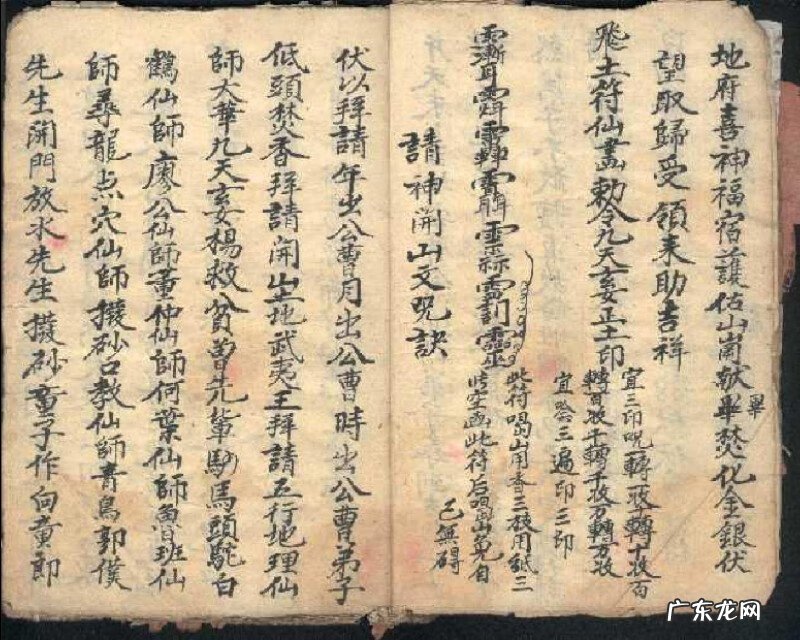 地府喜神福宿護佑山崗献畢焚化金銀伏
畢
望取歸受領來助吉祥
飛土符仙畵勅令九天玄正土印
宜三印呪一轉收十轉十收百
轉百收千轉千收万轉万收
宜唸三遍印三印
此符喝山用香三枝用紙三
此空画此符后喝山免自
己無碍
請神開山文咒訣
伏以拜請年出公曹月出公曹時出公曹弟子
低頭焚香拜請開山土地武夷王拜請五行地理仙
師大華九天玄楊救貧曽先輩馿馬頭駝白
鶴仙師廖公仙師董仲仙師何葉仙師魯班仙
師尋龍点穴仙師撥砂口教仙師青烏郭僕
先生開門放水先生撥砂童子作向童郎
广东龙网